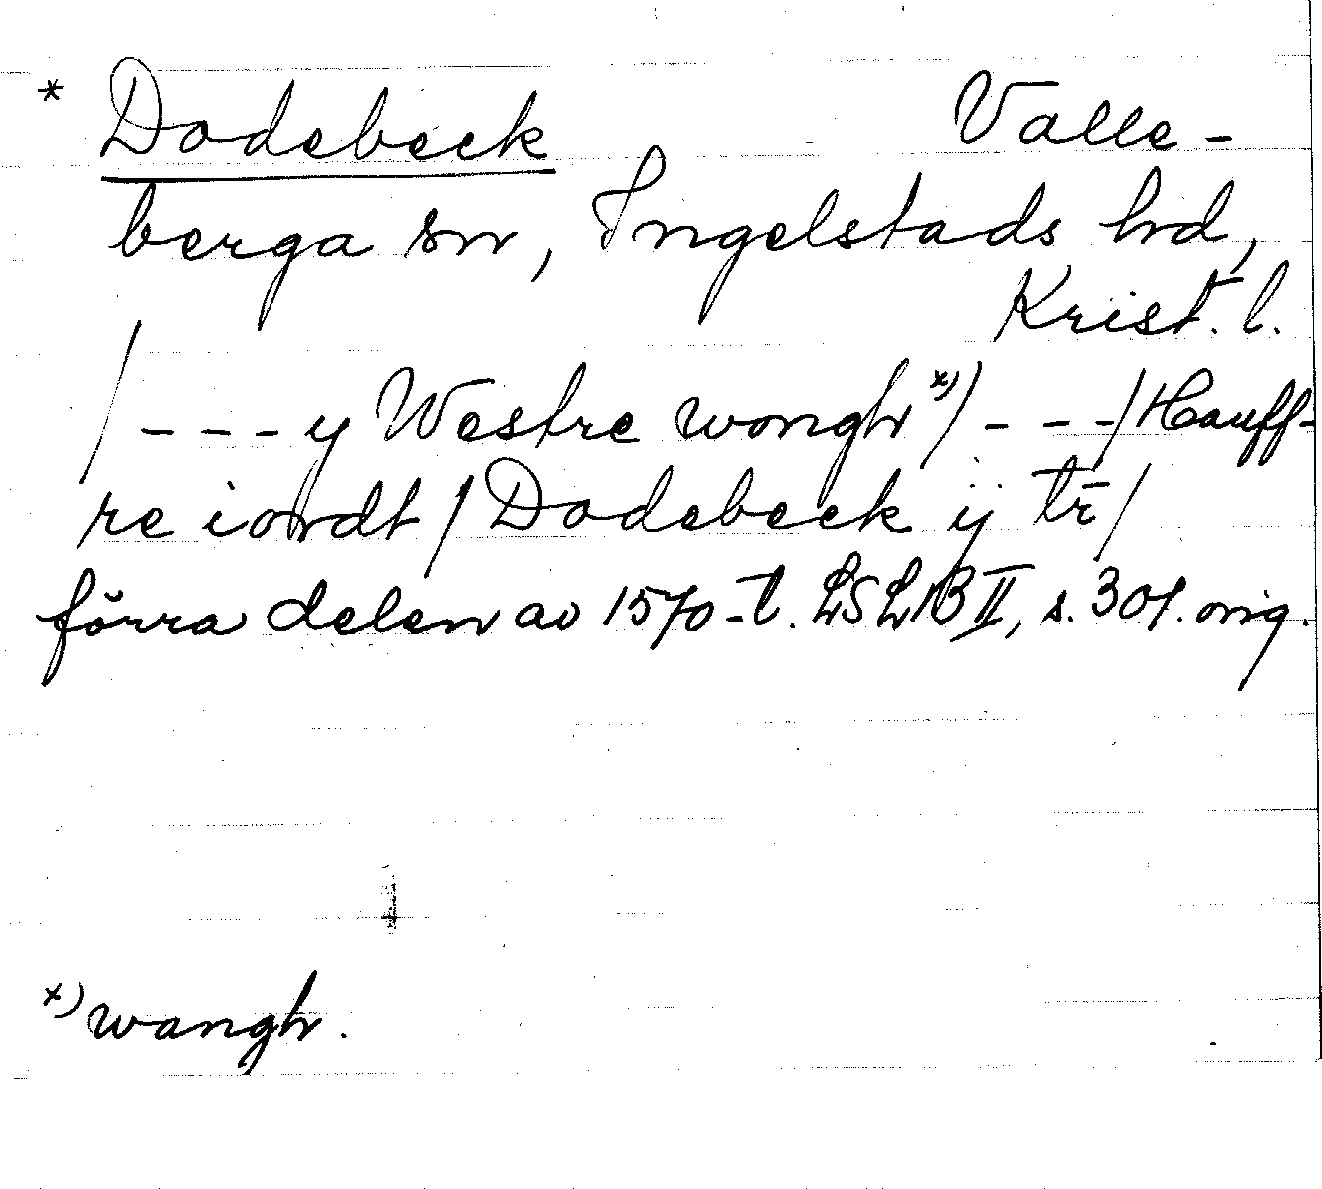 * Dodebeck Valle-
berga sn, Ingelstads hd,
Krist. l.
/---y Westre wongh x)/---/Hauff-
re iordt/Dodebeck ÿ tr̄/
förra delen av 1570-t. LSLB II, s. 301. orig.
x) wangh.